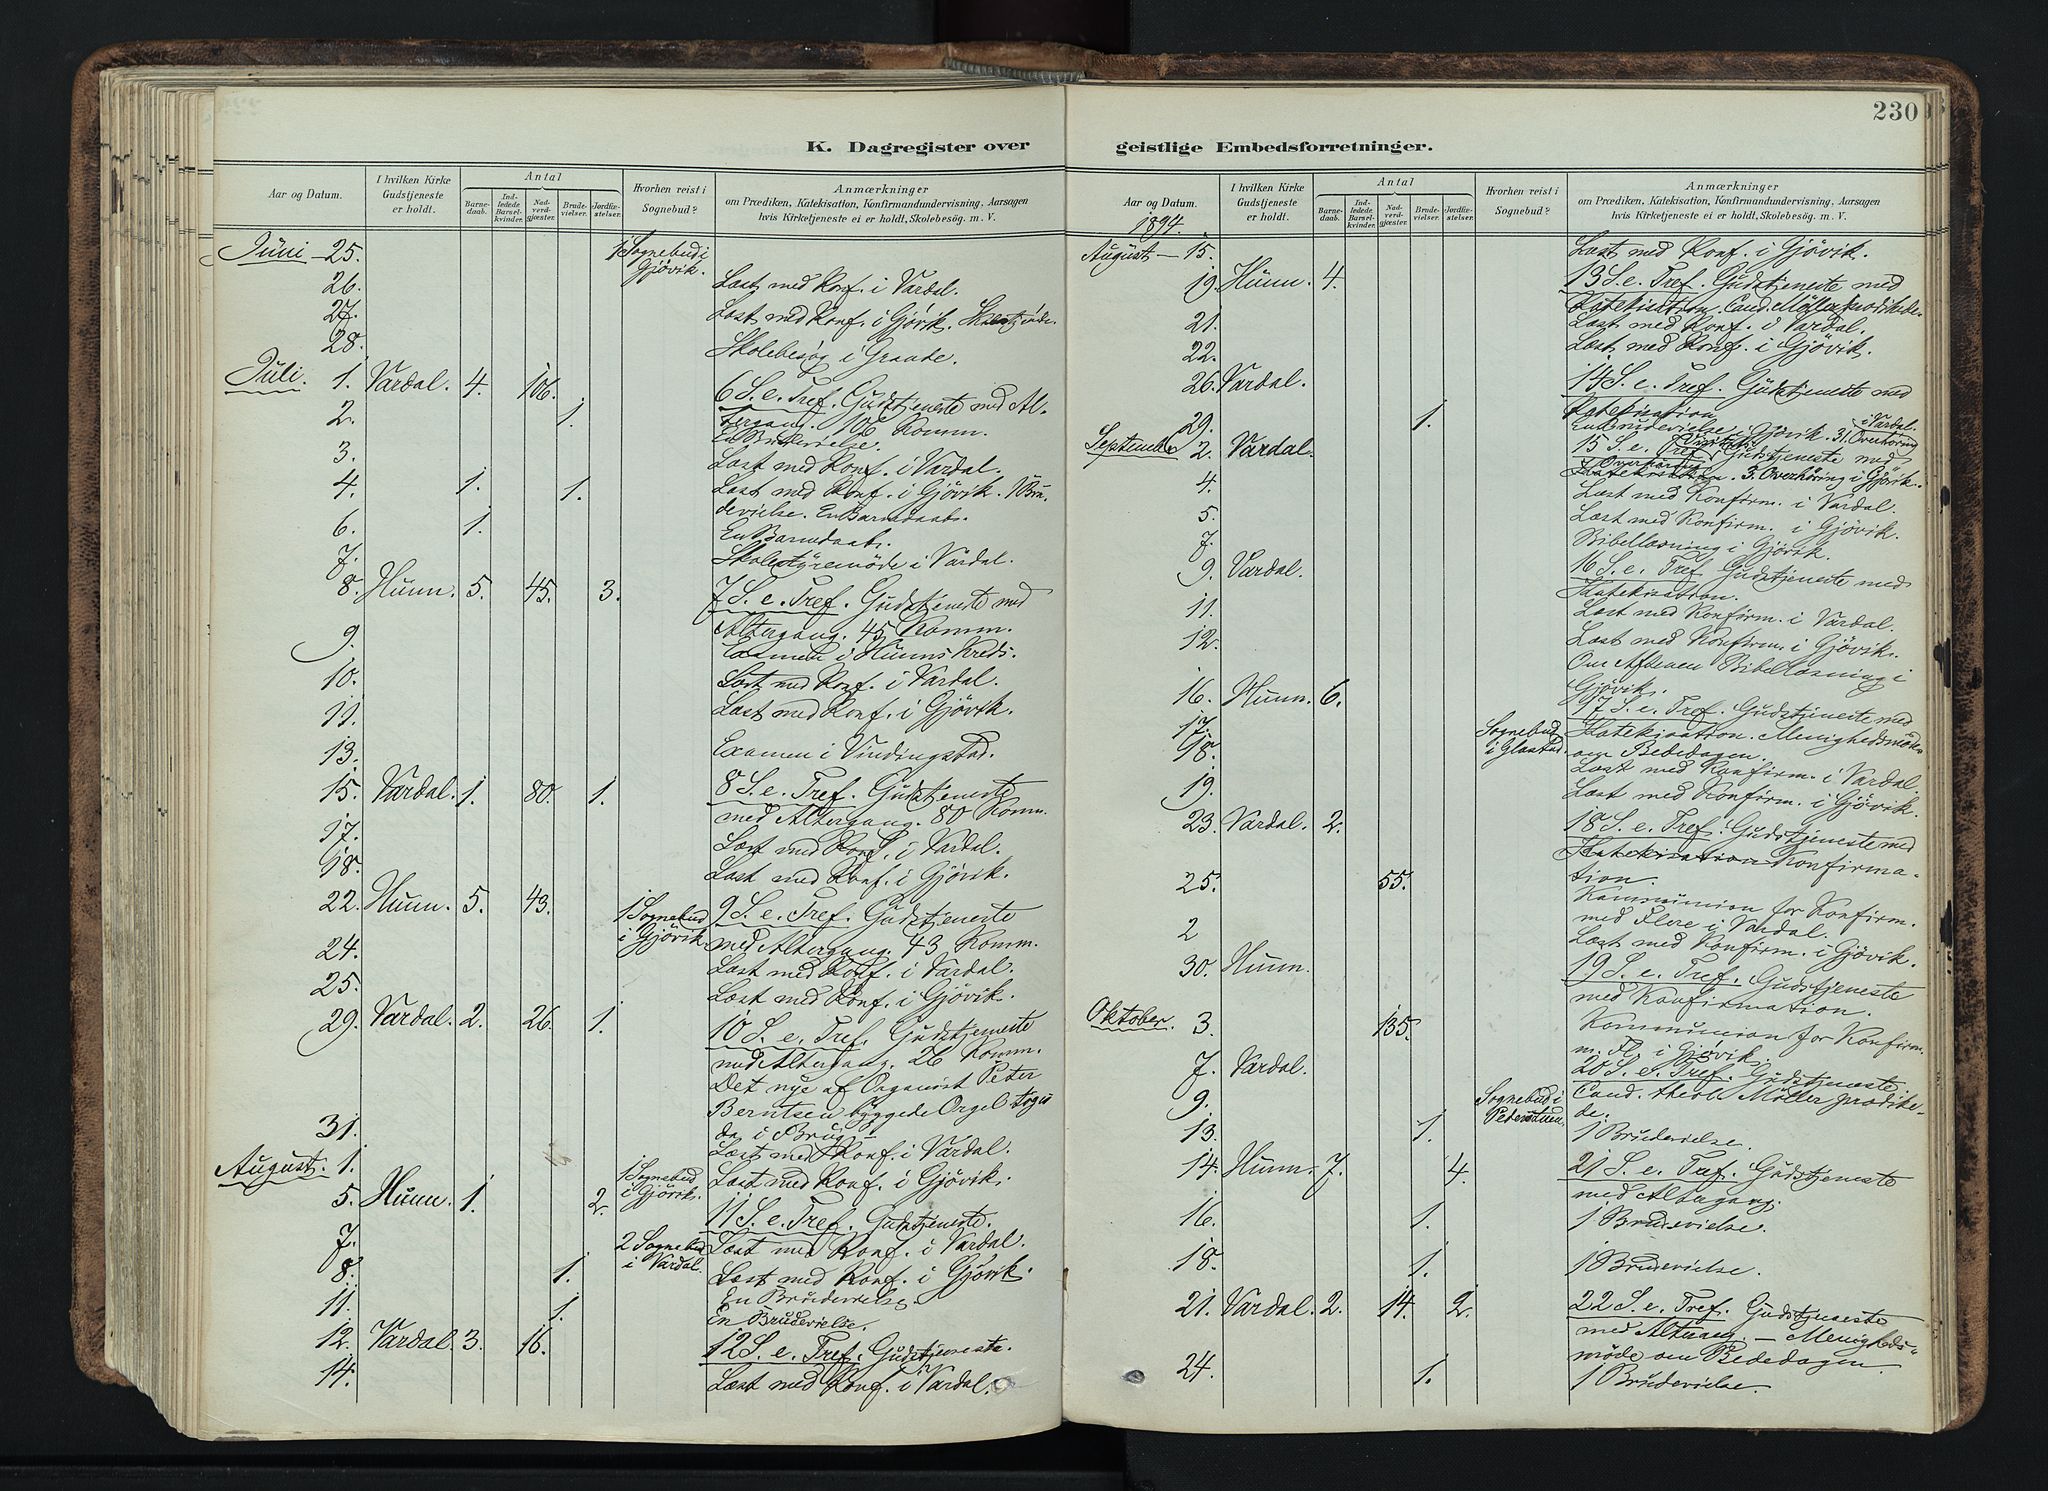 230
K. Dagregister over
Aar og Datum.
I hvilken Kirke Gudstjeneste er holdt.
Antal
Barnedaab.
Indledede Barselkvinder.
Nadverdgjæster.
Brudevielser.
Jordfæstelser.
Hvorhen reist i Sognebud?
Anmærkninger
om Prædiken, Katekisation, Konfirmandundervisning, Aarsagen
hvis Kirketjeneste ei er holdt, Skolebesøg m. V.
Juni 25. 1 Sognebud i Gjøvik.
26. Læst med Konf. i Vardal.
27. Læst med Konf. i Gjøvik.
28. Skolebesøg i
Juli. 1. Vardal. 4. 106. 6 S. e. Tref. Gudstjeneste med Al-
tergang. 106 Komm.
2. 1. En Brudevielse.
3. Læst med Konf. i Vardal.
4. 1. 1. Læst med Konf. i Gjøvik. 1 Bru-
devielse. En Barnedaab.
6. 1. En Barnedaab.
7. Skolestyremøde i Vardal.
8. Hunn. 5. 45. 3. 7 S. e. Tref. Gudstjeneste med
Altergang. 45 Komm.
9. Examen i Hunns Kreds.
10. Læst med Konf. i Vardal.
11. Læst med Konf. i Gjøvik.
13. Examen i Vindingstad.
15. Vardal. 1. 80. 1. 8 S. e. Tref. Gudstjeneste
med Altergang. 80 Komm.
17. Læst med Konf. i Vardal.
18. Læst med Konf. i Gjøvik.
22. Hunn. 5. 43. 1 Sognebud i Gjøvik. 9 S. e. Tref. Gudstjeneste
med Altergang. 43 Komm.
24. Læst med Konf. i Vardal.
25. Læst med Konf. i Gjøvik.
29. Vardal. 2. 26. 1. 10 S. e. Tref. Gudstjeneste
med Altergang. 26 Komm.
Det nye af Organist Peter
Berntsen byggede Orgel toges
da i Brug.
31. Læst med Konf. i Vardal.
August. 1. 1 Sognebud i Gjøvik. Læst med Konf. i Gjøvik.
5. Hunn. 1. 2. 11 S. e. Tref. Gudstjeneste.
7. 2 Sognebud i Vardal. Læst med Konf. i Vardal.
8. 1. Læst med Konf. i Gjøvik.
En Brudevielse.
11. 1. En Brudevielse.
12. Vardal 3. 16. 12 S. e. Tref. Gudstjeneste.
14. Læst med Konf. i Vardal.
geistlige Embedsforretninger.
Aar og Datum.
I hvilken Kirke Gudstjeneste er holdt.
Antal
Barnedaab.
Indledede Barselkvinder.
Nadverdgjæster.
Brudevielser.
Jordfæstelser.
Hvorhen reist i Sognebud?
Anmærkninger
om Prædiken, Katekisation, Konfirmandundervisning, Aarsagen
hvis Kirketjeneste ei er holdt, Skolebesøg m. V.
1894.
August 15. Læst med Konf. i Gjøvik.
19. Hunn. 4. 13 S. e. Tref. Gudstjeneste med
Katekisation. Cand. Møller prædikede.
21. Læst med Konf. i Vardal.
22. Læst med Konf. i Gjøvik.
26. Vardal. 14 S. e. Tref. Gudstjeneste med
Katekisation
29. 1. En Brudevielse i Gjøvik. 31. Overhøring i Vardal.
September 2. Vardal. 15 S. e. Tref. Gudstjeneste med
Katekisation. 3. Overhøring i Gjøvik.
4. Læst med Konfirm. i Vardal.
5. Læst med Konfirm. i Gjøvik.
7. Bibellæsning i Gjøvik.
9. Vardal. 16 S. e. Tref. Gudstjeneste med
Katekisation.
11. Læst med Konfirm. i Vardal.
12. Læst med Konfirm. i Gjøvik.
Om Aftenen Bibellæsning i
Gjøvik.
16. Hunn. 6. 17 S. e. Tref. Gudstjeneste med
17. Sognebud i Katekisation. Menighedsmøde
om Bededagen.
18. Læst med Konfirm. i Vardal.
19. Læst med Konfirm. i Gjøvik.
23. Vardal. 2. 18 S. e. Tref. Gudstjeneste med
Katekisation Konfirma-
tion.
25. 55. Kommunion for Konfirm.
med Flere i Vardal.
2 Læst med Konfirm. i Gjøvik.
30. Hunn. 19 S. e. Tref. Gudstjeneste
med Konfirmation.
Oktober. 3. 135. Kommunion for Konfirm.
m. Fl. i Gjøvik.
7. Vardal. 20 S. e. Tref. Gudstjeneste.
9. Sognebud i Cand. theol. Møller prædike-
de.
13. 1. 1 Brudevielse.
14. Hunn. 7. 4. 21 S. e. Tref. Gudstjeneste
med Altergang.
16. 1. 1 Brudevielse.
18. 1. 1 Brudevielse.
21. Vardal. 2. 14. 2. 22 S. e. Tref. Gudstjeneste
med Alterg. — Menigheds-
møde om Bededagen.
24. 1. 1 Brudevielse.